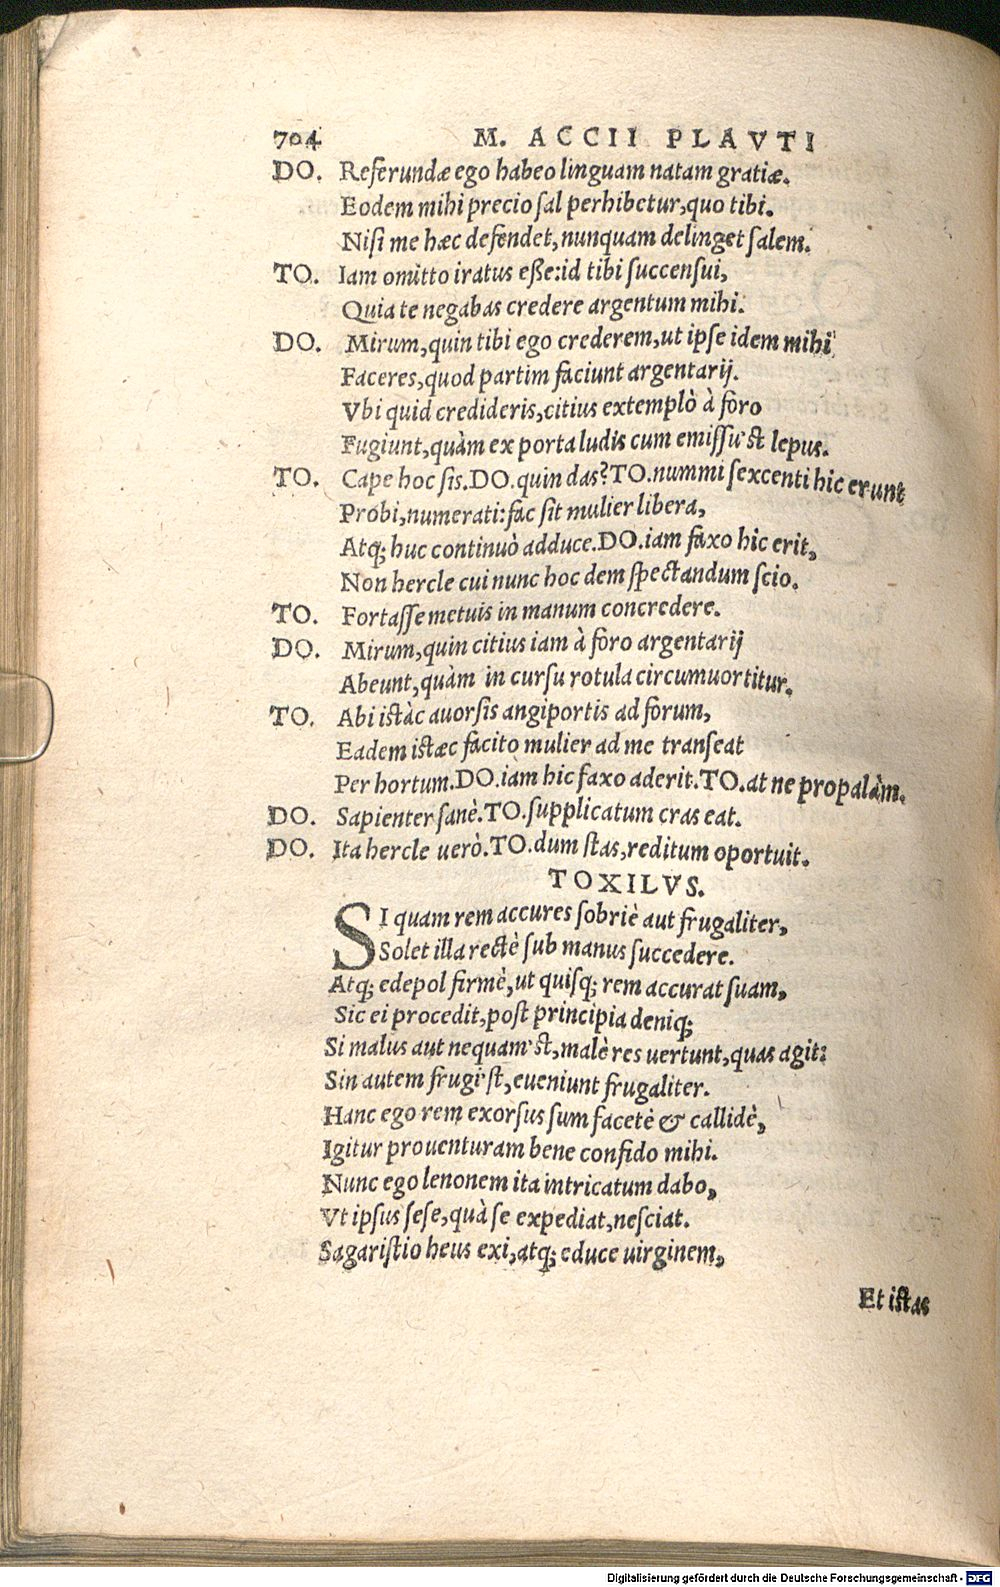 704 M. ACCII PLAVTI
DO. Referundæ ego habeo linguam natam gratiæ.
Eodem mihi precio sal perhibetur, quo tibi.
Nisi me hæc defendet, nunquam delinget salem.
TO. Iam omitto iratus eße: id tibi succensui,
Quia te negabas credere argentum mihi.
DO. Mirum, quin tibi ego crederem, ut ipse idem mihi
Faceres, quod partim faciunt argentarij.
Vbi quid credideris, citius extemplò à foro
Fugiunt, quàm ex porta ludis cum emissu'st lepus.
TO. Cape hoc sis. DO. quin das? TO. nummi sexcenti hic erunt
Probi, numerati: fac sit mulier libera,
Atq; huc continuò adduce. DO. iam faxo hic erit,
Non hercle cui nunc hoc dem spectandum scio.
TO. Fortasse metuis in manum concredere.
DO. Mirum, quin citius iam à foro argentarij
Abeunt, quàm in cursu rotula circumuortitur.
TO. Abi istàc auorsis angiportis ad forum,
Eadem istæc facito mulier ad me transeat
Per hortum. DO. iam hic faxo aderit. TO. at ne propalàm.
DO. Sapienter sanè. TO. supplicatum cras eat.
DO. Ita hercle uerò. TO. dum stas, reditum oportuit.
TOXILVS.
SI quam rem accures sobriè aut frugaliter,
Solet illa rectè sub manus succedere.
Atq; edepol firmè, ut quisq; rem accurat suam,
Sic ei procedit, post principia deniq;
Si malus aut nequam'st, malè res uertunt, quas agit:
Sin autem frugi'st, eueniunt frugaliter.
Hanc ego rem exorsus sum facetè & callidè,
Igitur prouenturam bene confido mihi.
Nunc ego lenonem ita intricatum dabo,
Vt ipsus sese, quà se expediat, nesciat.
Sagaristio heus exi, atq; educe uirginem,
Et istas
Digitalisierung gefördert durch die Deutsche Forschungsgemeinschaft - DFG